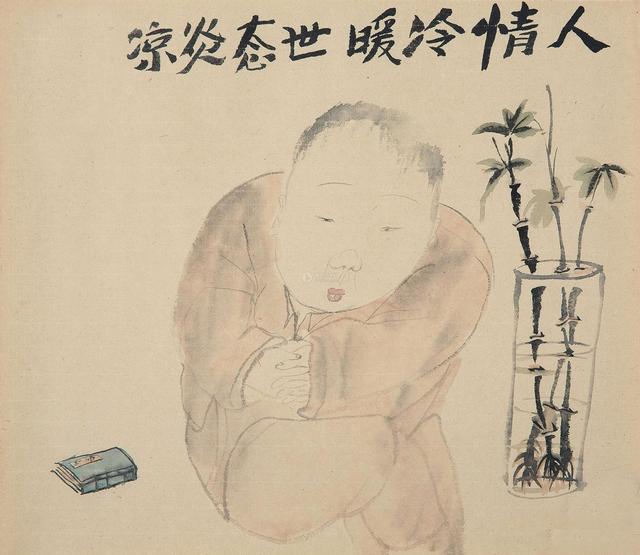 人情冷暖世态炎凉